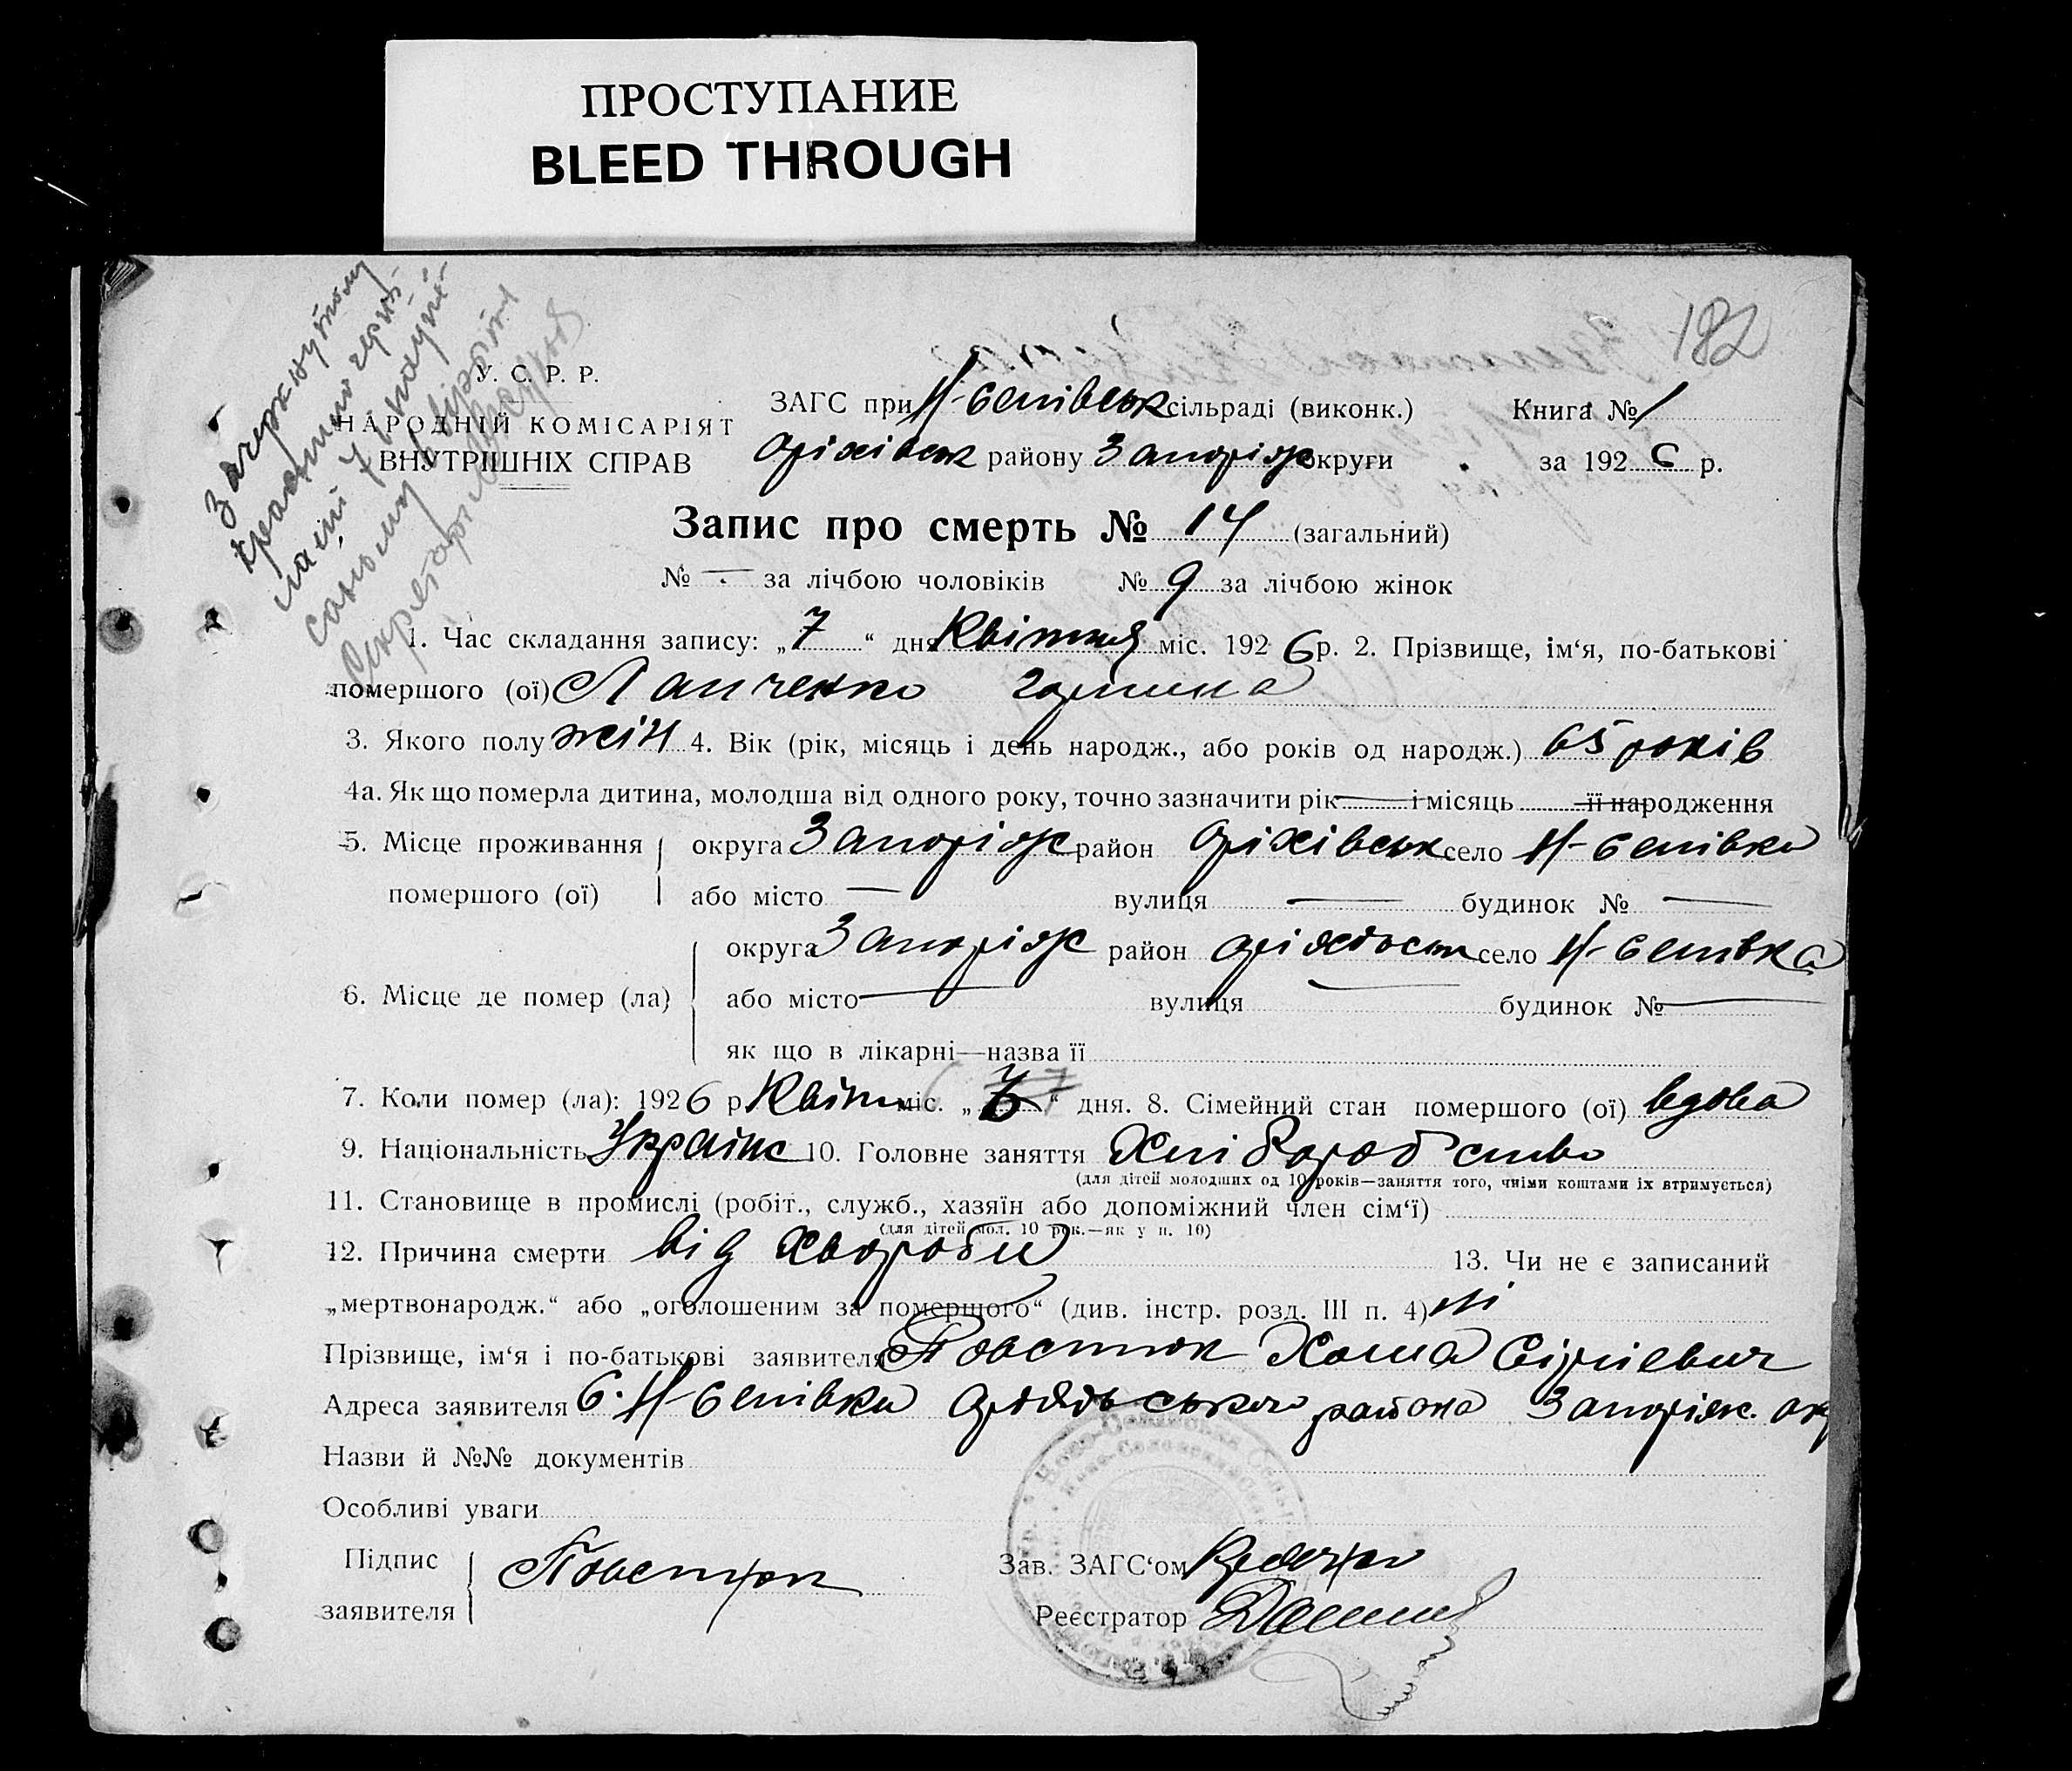 ПРОСТУПАНИЕ
BLEED THROUGH
182
У. С. Р. Р.
НАРОДНІЙ КОМІСАРІЯТ
ВНУТРІШНІХ СПРАВ
ЗАГС при сільраді (виконк.) Книга № 1
Оріхівськ району Запоріж округи за 1926 р.
Запис про смерть № 14 (загальний)
№ — за лічбою чоловіків № 9 за лічбою жінок
1. Час складання запису: „7“ дня Квітня міс. 1926 р. 2. Прізвище, ім‘я, по-батькові
помершого (ої)
3. Якого полу жін 4. Вік (рік, місяць і день народж., або років од народж.) 65 років
4а. Як що померла дитина, молодша від одного року, точно зазначити рік і місяць її народження
5. Місце проживання округа Запоріж район Оріхівськ село
помершого (ої) або місто — вулиця — будинок № —
округа Запоріж район село
6. Місце де помер (ла) або місто — вулиця — будинок № —
як що в лікарні—назва її
7. Коли помер (ла): 1926 р. Квітн міс. „ “ дня. 8. Сімейний стан помершого (ої) вдова
9. Національність Україн 10. Головне заняття Хліборобство
(для дітей молодших од 10 років—заняття того, чиїми коштами їх втримується)
11. Становище в промислі (робіт., служб., хазяїн або допоміжний член сім‘ї)
(для дітей мол. 10 рок.—як у п. 10)
12. Причина смерти від хвороби 13. Чи не є записаний
„мертвонародж.“ або „оголошеним за померщого“ (див. інстр. розд. III п. 4) ні
Прізвище, ім‘я і по-батькові заявителя
Адреса заявителя района Запоріж. окр
Назви й №№ документів
Особливі уваги
Підпис
заявителя
Зав. ЗАГС‘ом
Реєстратор